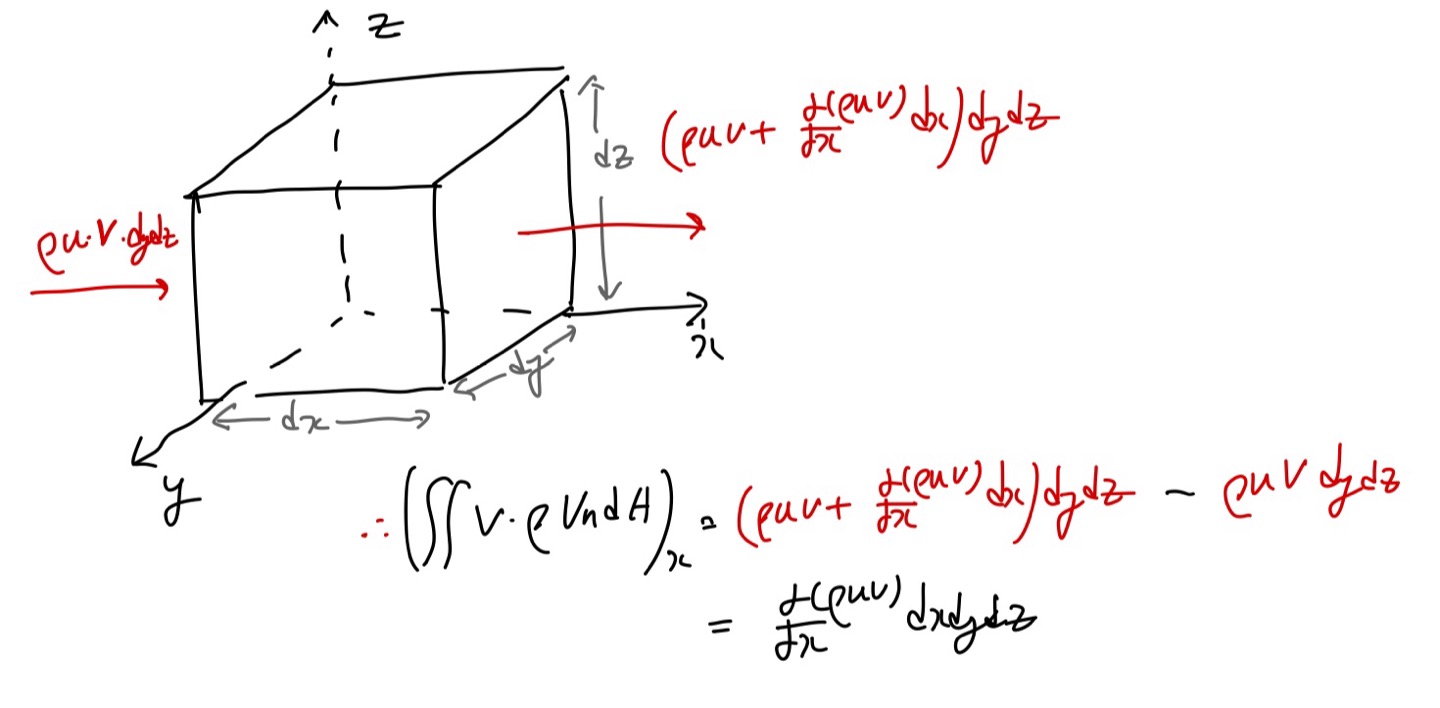 z
(ρuv + ∂/∂x (ρuv) dx) dydz
dz
ρu·V·dydz
x
dy
dx
y
∴ (∬ V·ρVn dA)x = (ρuv + ∂/∂x (ρuv) dx) dydz − ρuV dydz
= ∂/∂x (ρuv) dxdydz